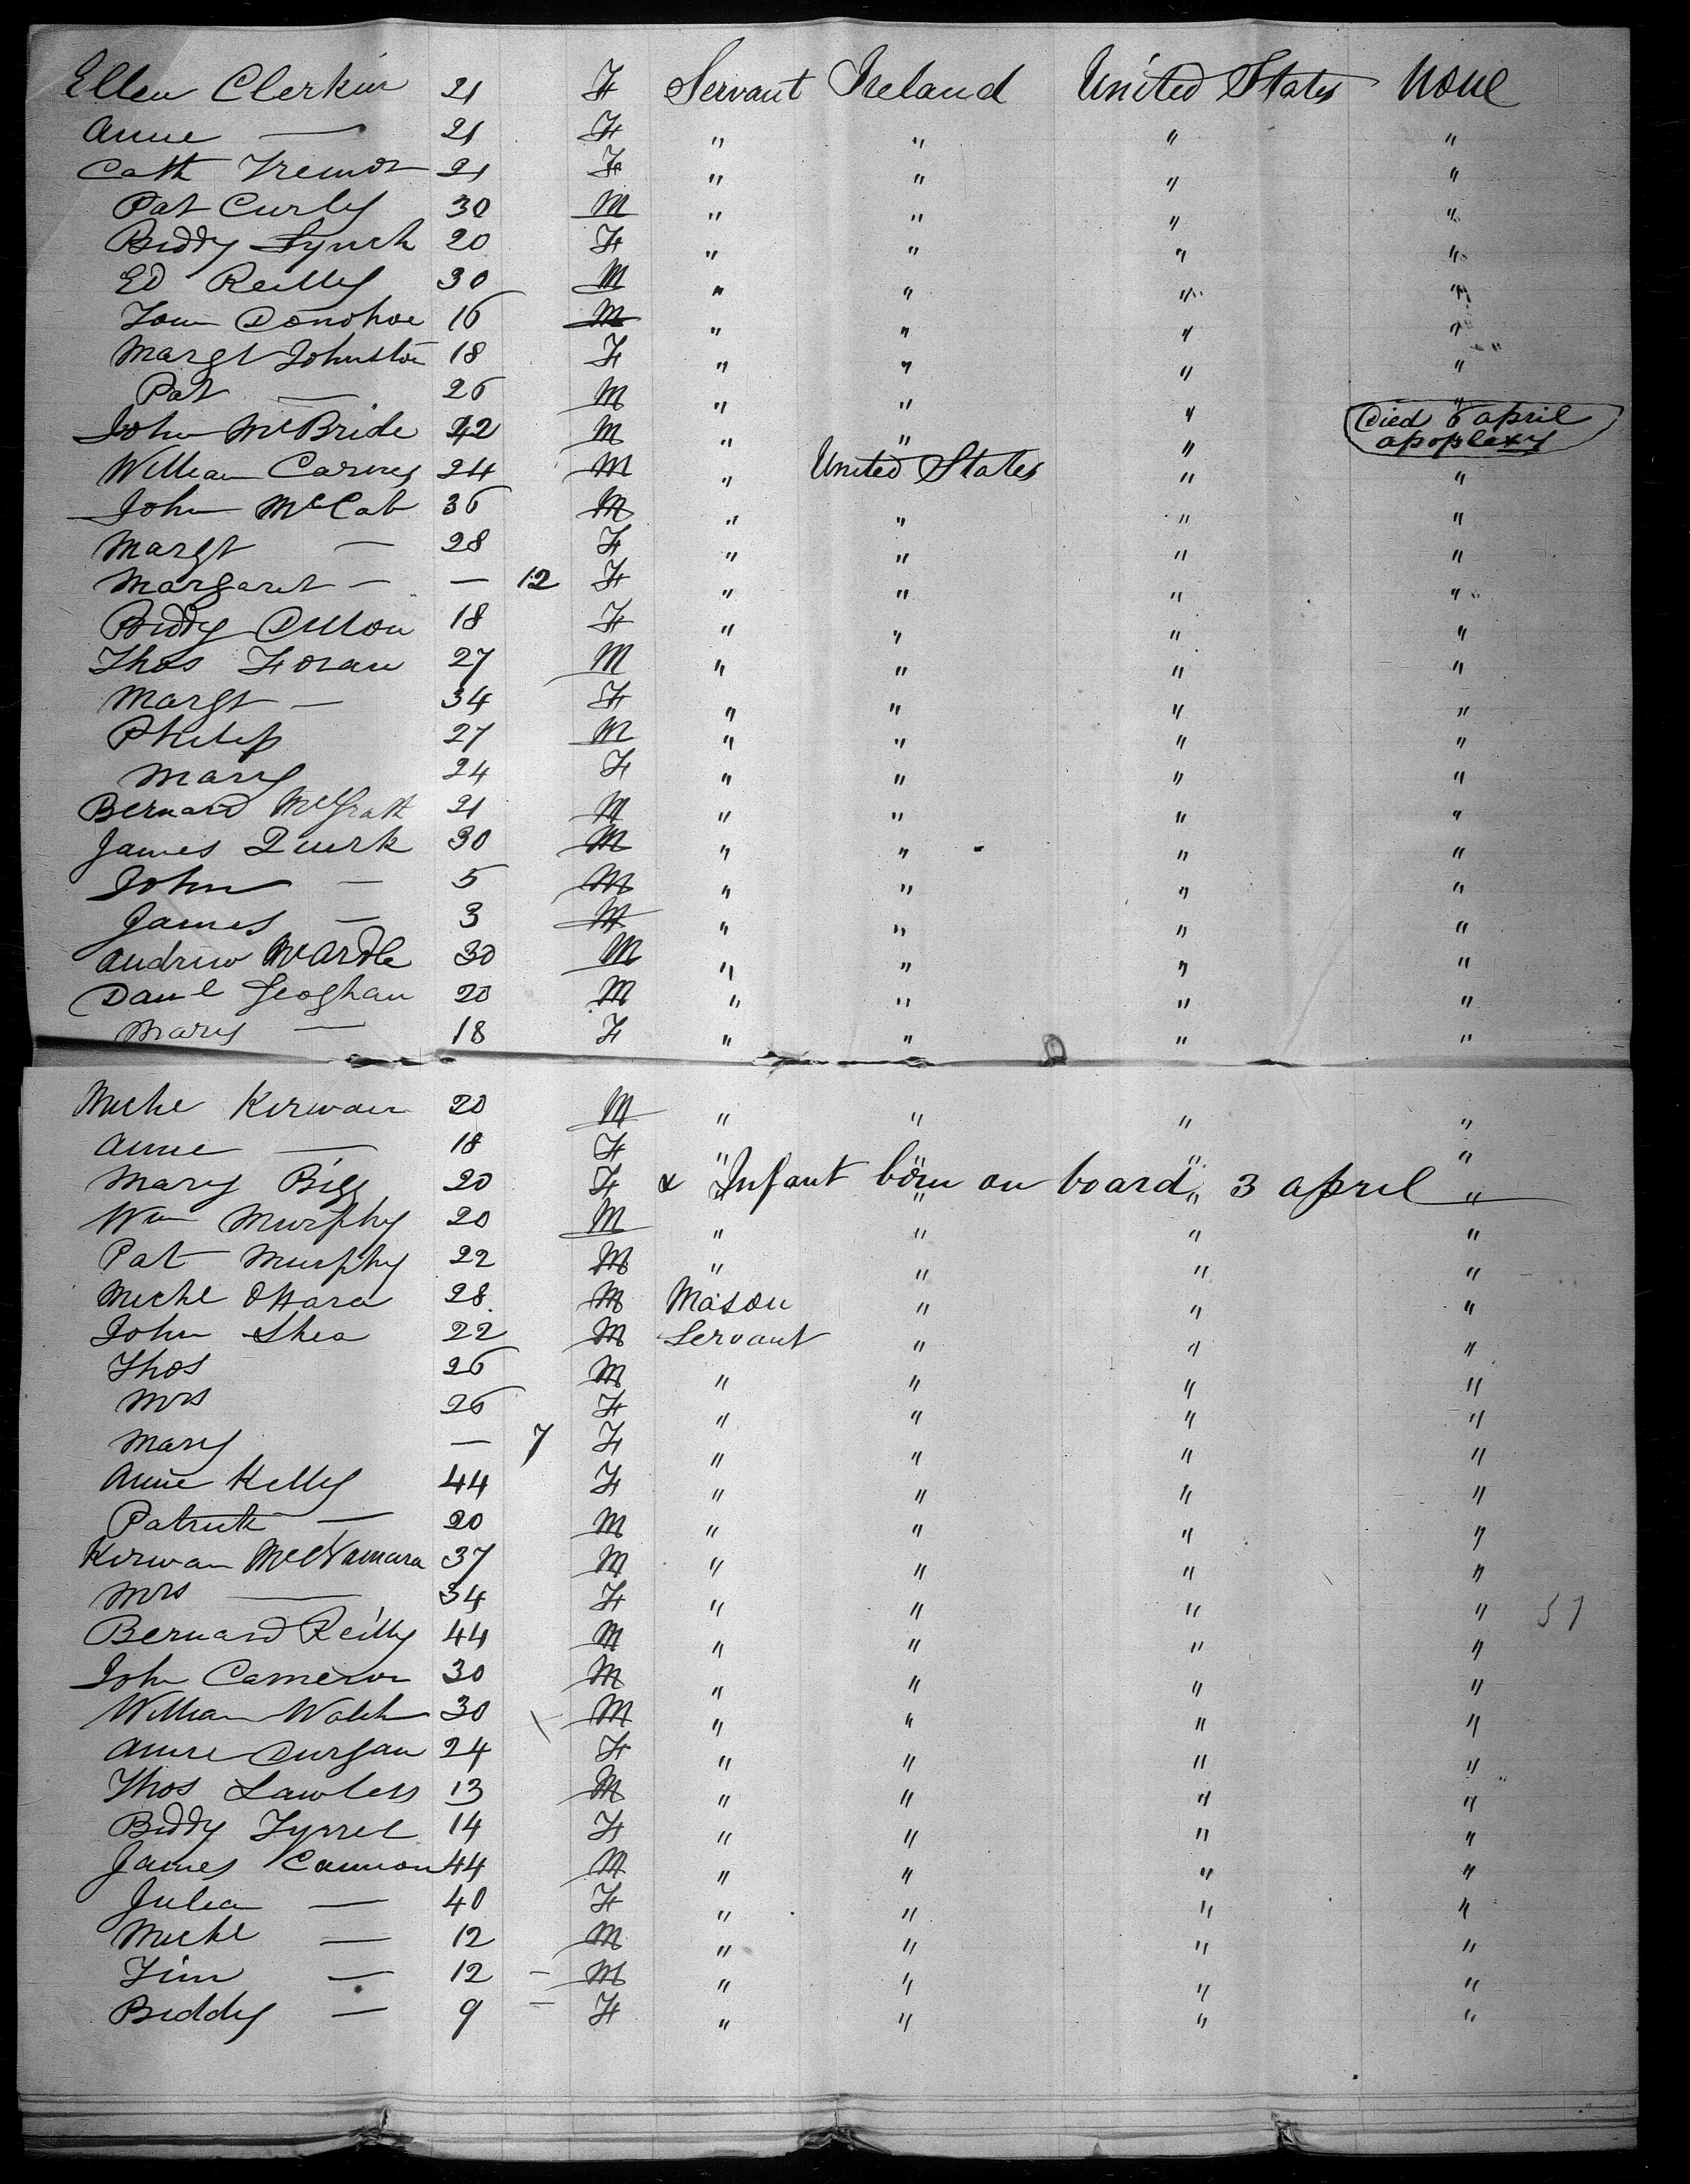 Ellen Clerkin 21 F Servant Ireland United States None
Anne — 21 F " " " "
Cath 21 F " " " "
Pat Curly 30 M " " " "
Biddy Lynch 20 F " " " "
Ed Reilly 30 M " " " "
Tom Donohoe 16 M " " " "
Margt Johnston 18 F " " " "
Pat — 26 M " " " "
John McBride 42 M " " " Died 6 april apoplexy
William 24 M " United States " "
John McCab 36 M " " " "
Margt — 28 F " " " "
Margaret — — 12 F " " " "
Biddy Dillon 18 F " " " "
Thos Foran 27 M " " " "
Margt — 34 F " " " "
Philip 27 M " " " "
Mary 24 F " " " "
Bernard McGrath 21 M " " " "
James Quirk 30 M " " " "
John — 5 M " " " "
James — 3 M " " " "
Andrew McArdle 30 M " " " "
Danl Geoghan 20 M " " " "
Mary — 18 F " " " "
Michl Kirwan 20 M " " " "
Anne — 18 F " " " "
Mary Bigg 20 F & Infant born on board 3 april "
Wm Murphy 20 M " " " "
Pat Murphy 22 M " " " "
Michl OHara 28 M Mason " " "
John Shea 22 M Servant " " "
Thos 26 M " " " "
Mrs 26 F " " " "
Mary — 7 F " " " "
Anne Kelly 44 F " " " "
Patrick — 20 M " " " "
Kirwan McNamara 37 M " " " "
Mrs — 34 F " " " " 51
Bernard Reilly 44 M " " " "
John Cameron 30 M " " " "
William Walsh 30 M " " " "
Anne Durgan 24 F " " " "
Thos Lawless 13 M " " " "
Biddy Tyrrel 14 F " " " "
James Cannon 44 M " " " "
Julia — 40 F " " " "
Michl — 12 M " " " "
Jim — 12 – M " " " "
Biddy — 9 – F " " " "